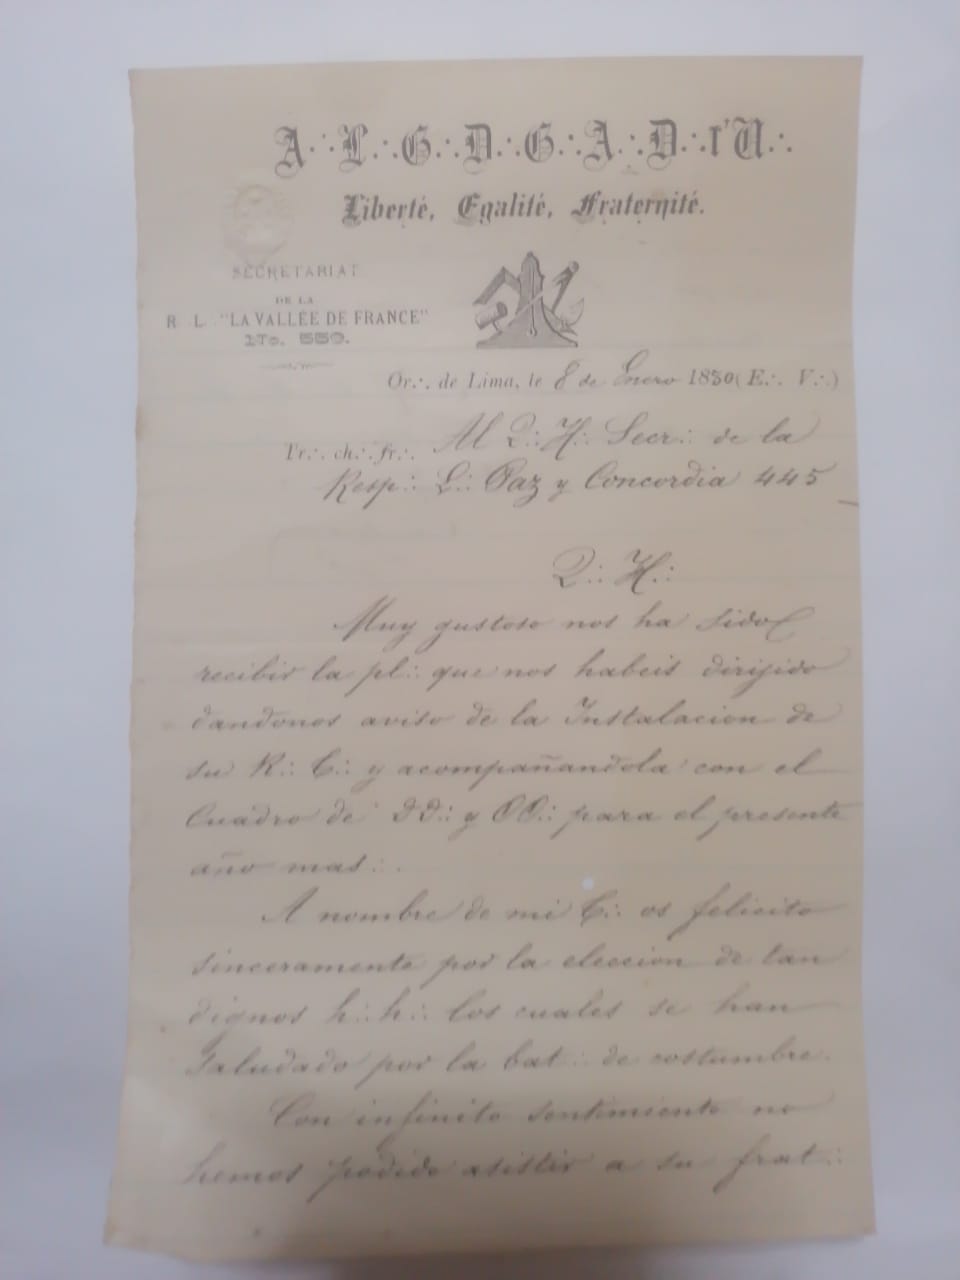 A∴L∴G∴D∴G∴A∴D∴l'U∴
Liberté, Egalité, Fraternité.
SECRETARIAT
DE LA
R∴ L∴ "LA VALLÉE DE FRANCE"
No. 550.
Or∴ de Lima, le 8 de Enero 1890 (E∴ V∴)
Tr∴ ch∴ fr∴ Al Q∴ H∴ Secr∴ de la
Resp∴ L∴ Paz y Concordia 445
Q∴ H∴
Muy gustoso nos ha sido
recibir la pl∴ que nos habeis dirijido
dandonos aviso de la Instalacion de
su R∴ C∴ y acompañandola con el
Cuadro de DD∴ y OO∴ para el presente
año mas∴
A nombre de mi C∴ os felicito
sinceramente por la eleccion de tan
dignos h∴h∴ los cuales se han
saludado por la bat∴ de costumbre.
Con infinito sentimiento no
hemos podido asistir a su frat∴